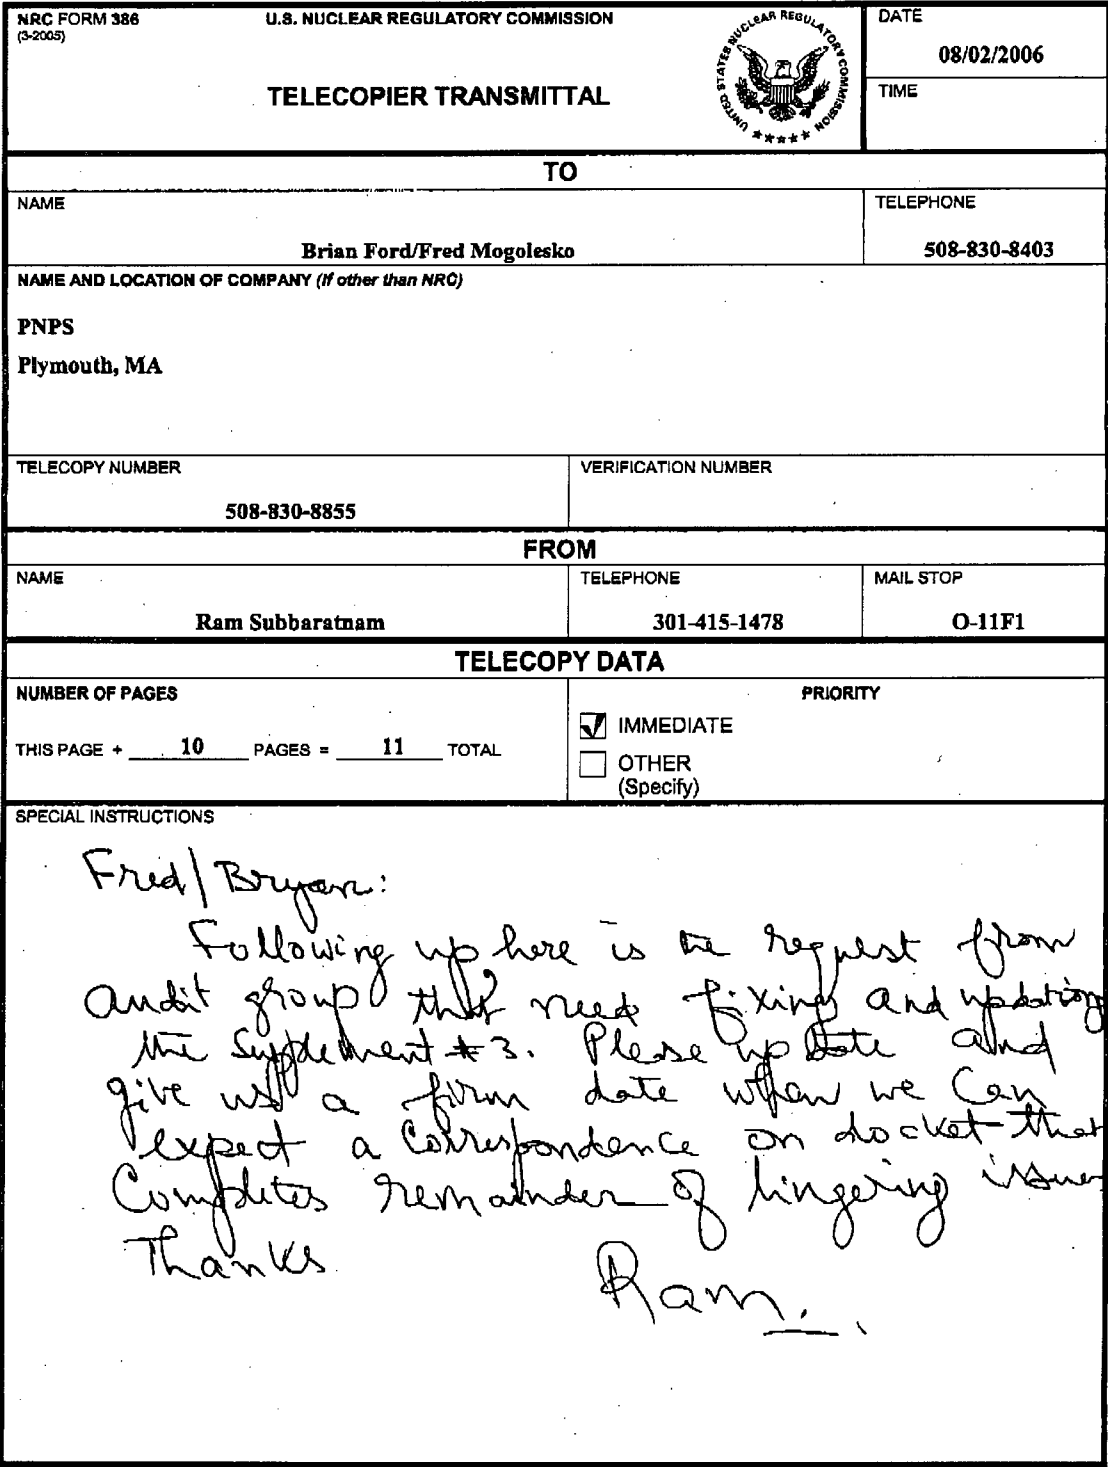 NRC FORM 386
(3-2005)
U.S. NUCLEAR REGULATORY COMMISSION
TELECOPIER TRANSMITTAL
UNITED STATES NUCLEAR REGULATORY COMMISSION
DATE
08/02/2006
TIME
TO
NAME
Brian Ford/Fred Mogolesko
TELEPHONE
508-830-8403
NAME AND LOCATION OF COMPANY (If other than NRC)
PNPS
Plymouth, MA
TELECOPY NUMBER
508-830-8855
VERIFICATION NUMBER
FROM
NAME
Ram Subbaratnam
TELEPHONE
301-415-1478
MAIL STOP
O-11F1
TELECOPY DATA
NUMBER OF PAGES
THIS PAGE + 10 PAGES = 11 TOTAL
PRIORITY
IMMEDIATE
OTHER
(Specify)
SPECIAL INSTRUCTIONS
Fred/Bryan:
Following up here is the request from
audit group that need fixing and updating
the Supplement #3. Please update and
give us a firm date when we can
expect a correspondence on docket that
Completes remainder of lingering issues
Thanks
Ram